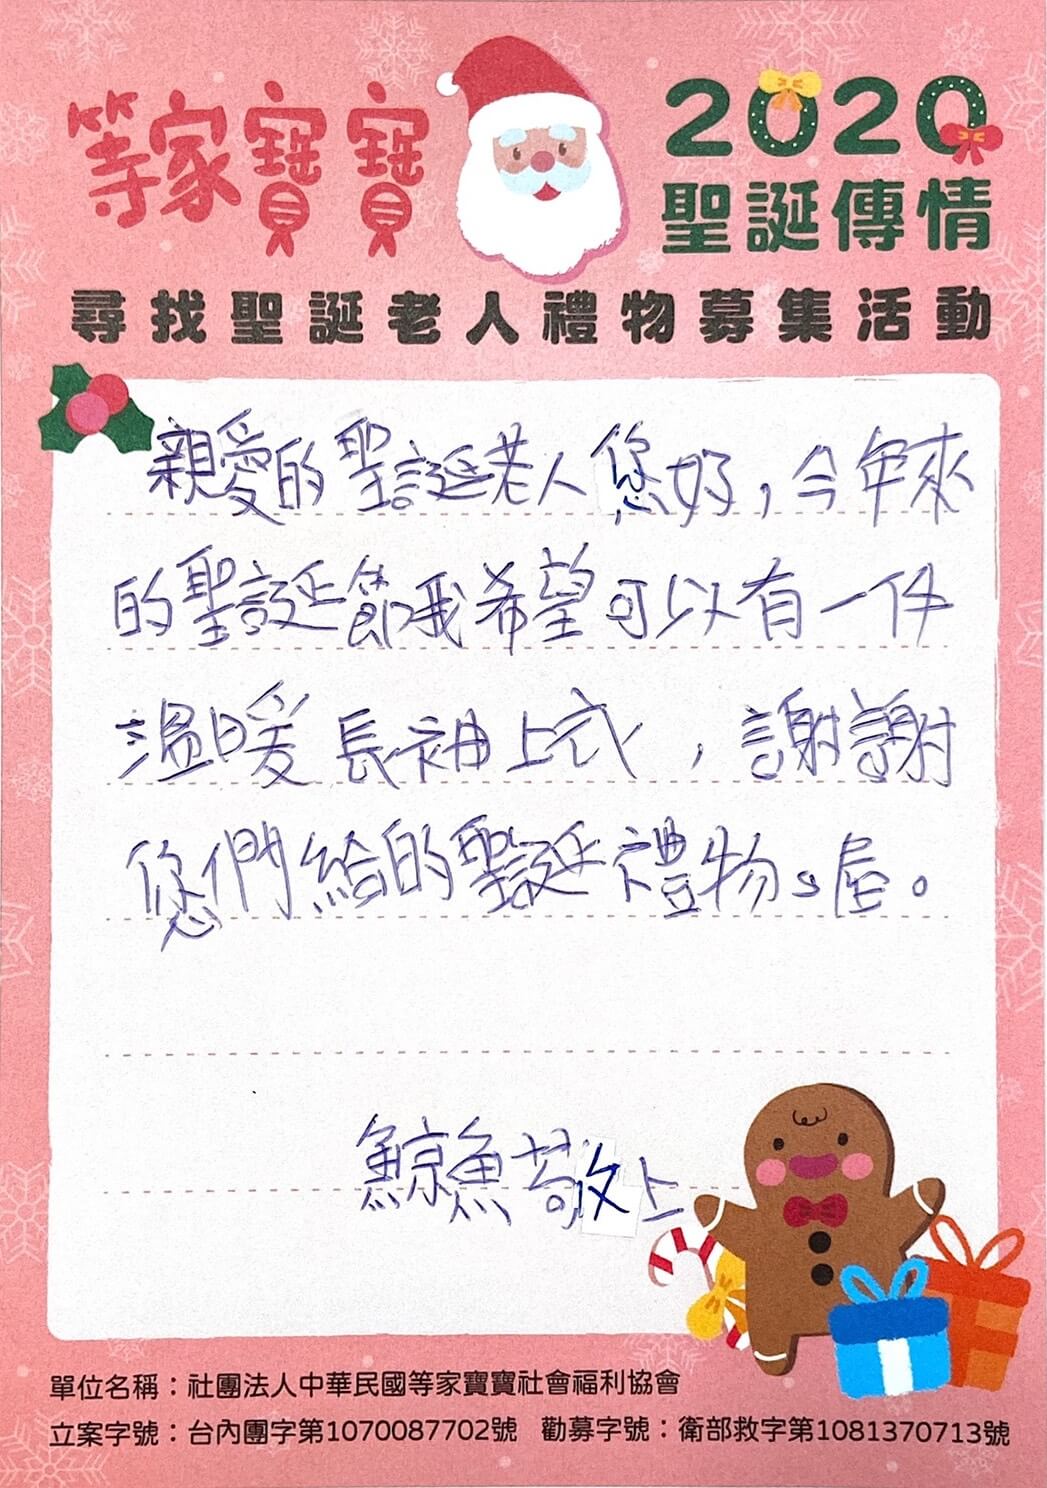 等家寶寶
2020
聖誕傳情
尋找聖誕老人禮物募集活動
親愛的聖誕老人您好，今年來
的聖誕節我希望可以有一件
溫暖長袖上衣，謝謝
您們給的聖誕禮物。屋。
鯨魚敬上
單位名稱：社團法人中華民國等家寶寶社會福利協會
立案字號：台內團字第1070087702號 勸募字號：衛部救字第1081370713號